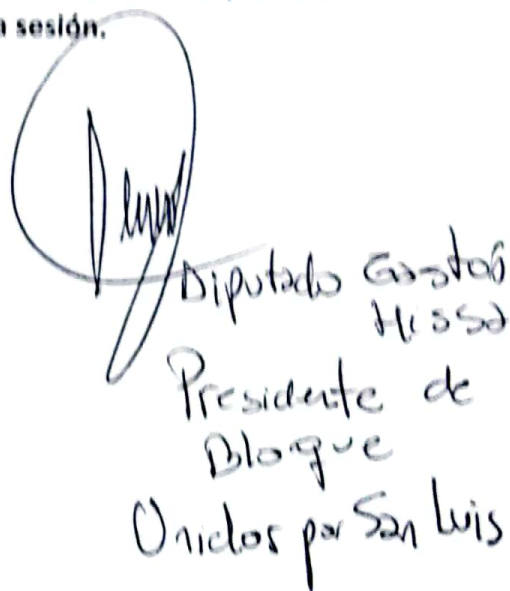 a sesión.
Diputado Gastón
Hissa
Presidente de
Bloque
Unidos por San Luis